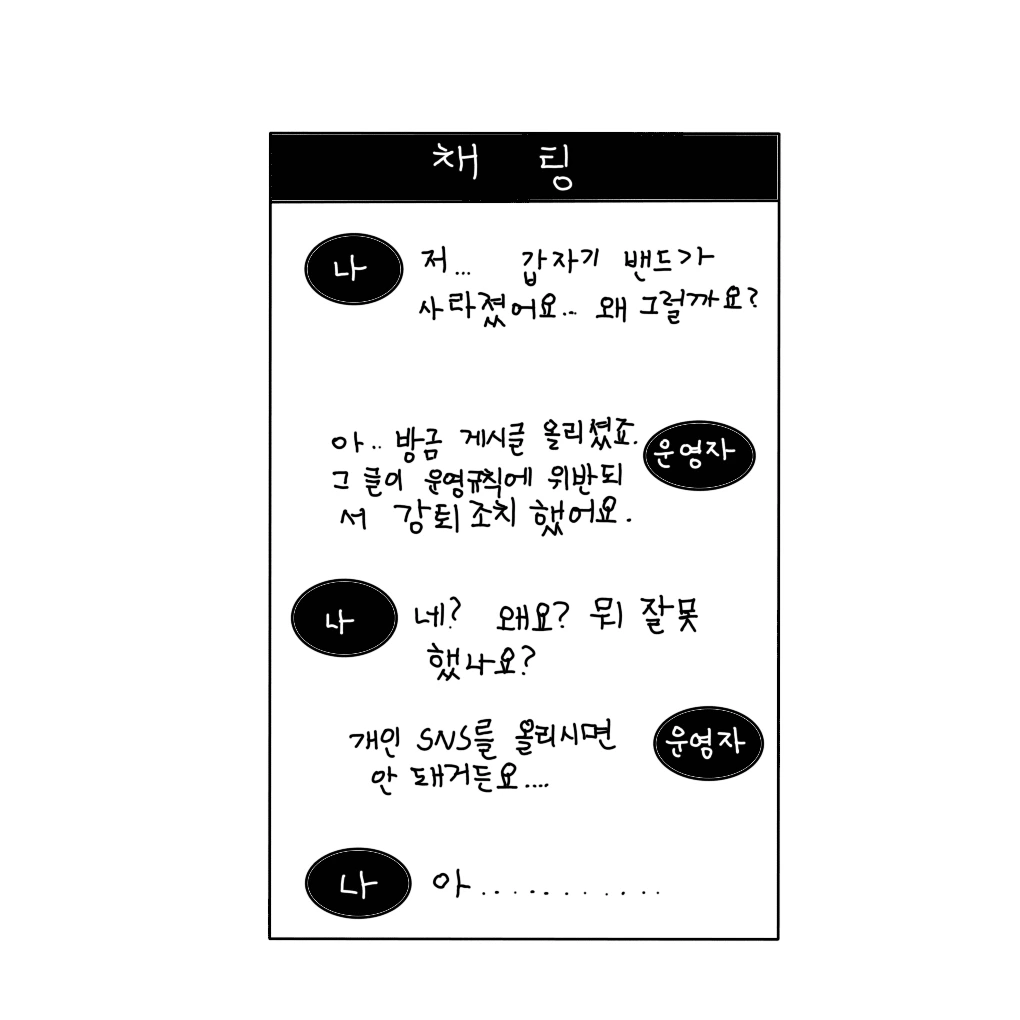 채 팅
나
저... 갑자기 밴드가
사라졌어요... 왜 그럴까요?
아.. 방금 게시글 올리셨죠.
운영자
그 글이 운영규칙에 위반되
서 강퇴 조치 했어요.
나
네? 왜요? 뭐 잘못
했나요?
개인 SNS를 올리시면
운영자
안 돼거든요....
나
아...........